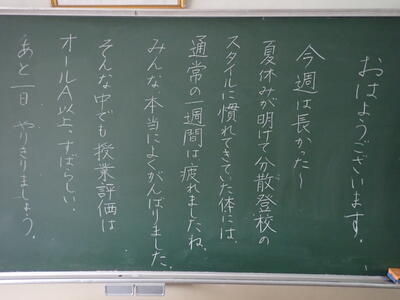 おはようございます。
今週は長かった〜
夏休みが明けて分散登校の
スタイルに慣れてきていた体には、
通常の一週間は疲れましたね。
みんな、本当によくがんばりました。
そんな中でも授業評価は
オールA以上、すばらしい。
あと一日、やりきりましょう。